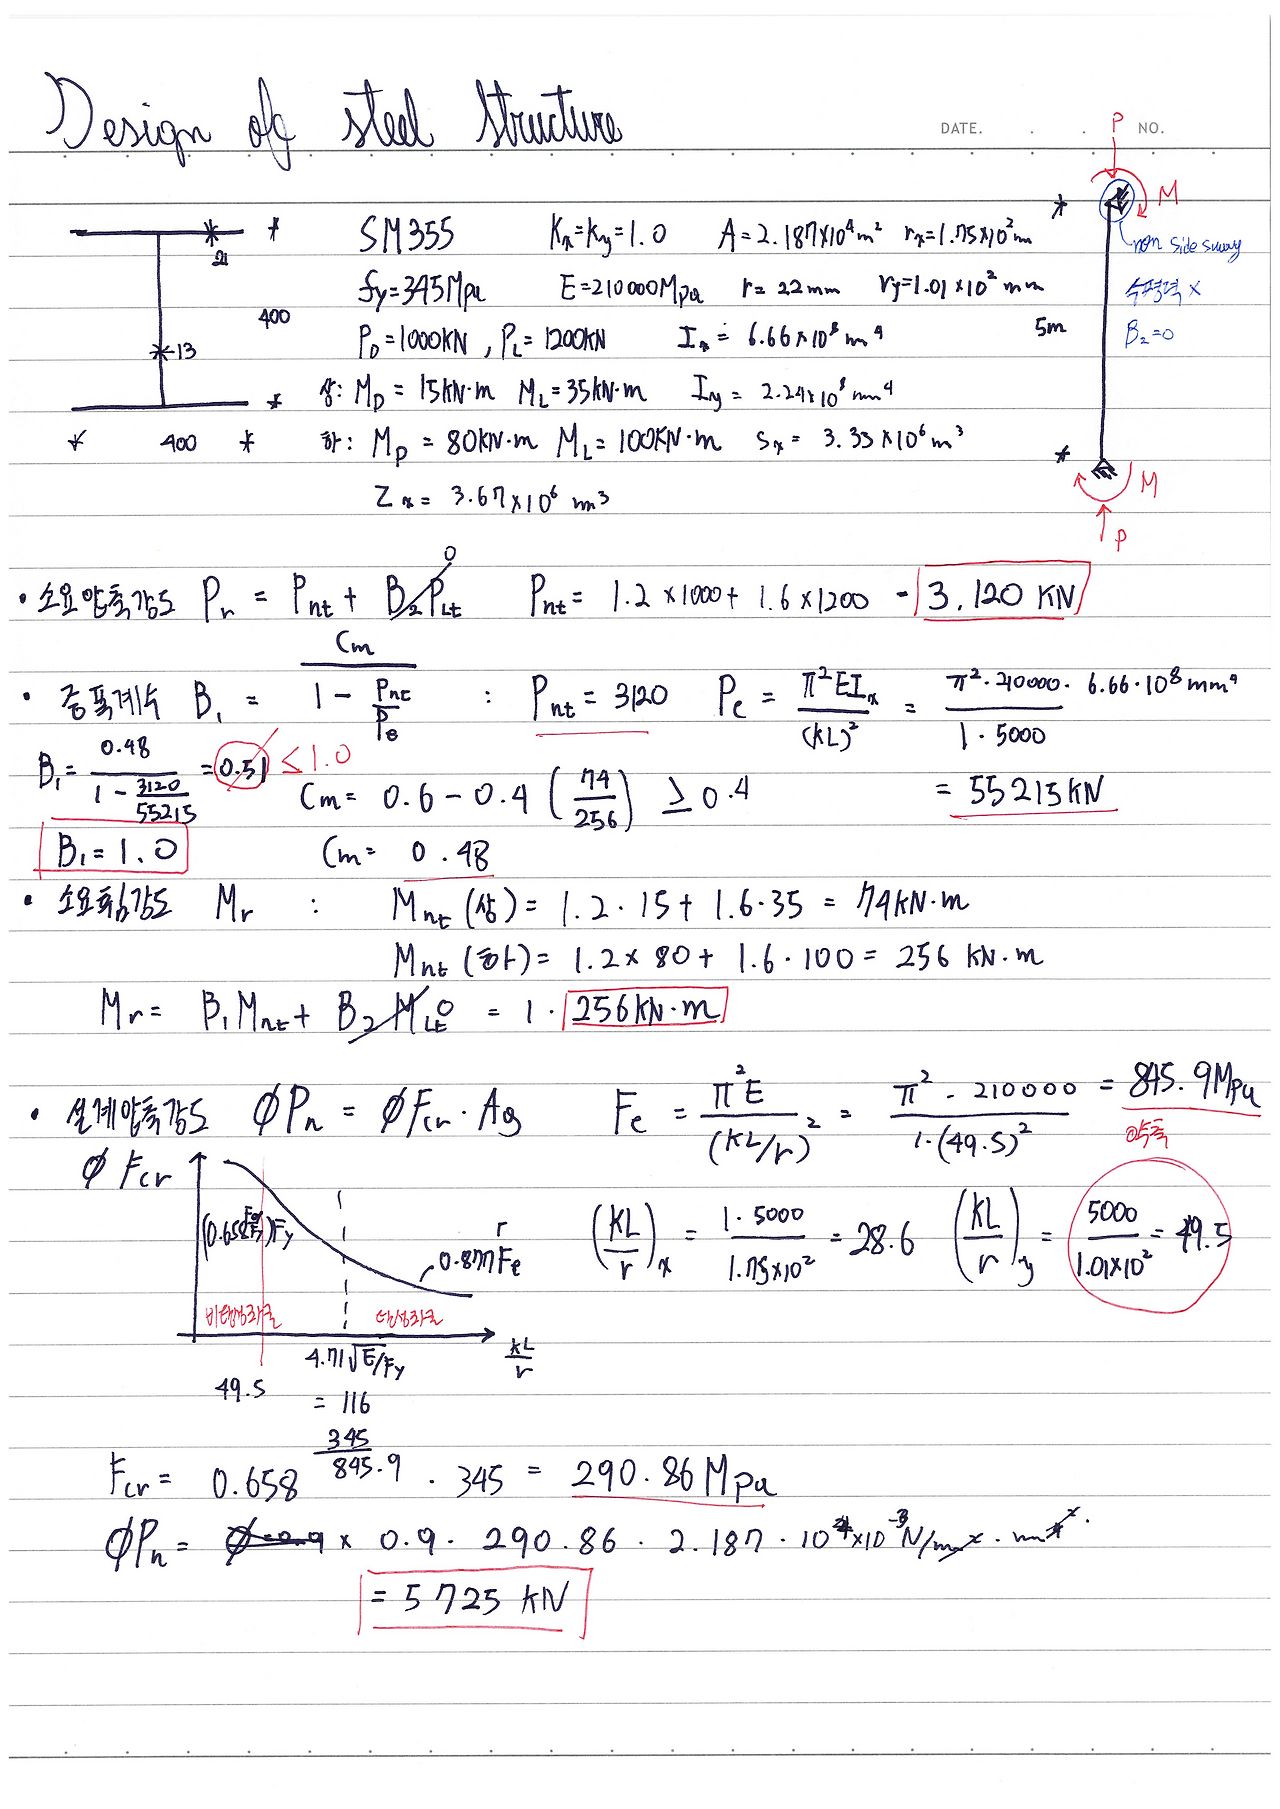 Design of steel structure
DATE. . . NO.
P
M
SM355 Kx=Ky=1.0 A=2.187×10⁴m² rx=1.75×10²m
non side sway
21
fy=345Mpa E=210000Mpa r=22mm ry=1.01×10²mm
수평력 x
400
PD=1000KN, PL=1200KN Ix=6.66×10⁸mm⁴
5m
B₂=0
13
상: MD=15KN·m ML=35KN·m Iy=2.24×10⁸mm⁴
400
하: MD=80KN·m ML=100KN·m Sx=3.33×10⁶m³
Zx=3.67×10⁶mm³
M
P
• 소요압축강도 Pr = Pnt + B₂PLt 0 Pnt = 1.2×1000+1.6×1200 = 3,120 KN
• 증폭계수 B₁ = Cm / (1 - Pnt/Pe) : Pnt=3120 Pe = π²EIx/(KL)² = π²·210000·6.66·10⁸mm⁴ / 1·5000
B₁ = 0.48 / (1 - 3120/55215) = 0.51 ≤1.0
Cm = 0.6-0.4(74/256) ≥ 0.4
= 55215KN
B₁=1.0
Cm = 0.48
• 소요휨강도 Mr : Mnt(상) = 1.2·15+1.6·35 = 74KN·m
Mnt(하) = 1.2×80+1.6·100 = 256 KN·m
Mr = B₁Mnt + B₂MLt 0 = 1·256KN·m
• 설계압축강도 ØPn = ØFcr·Ag Fe = π²E/(KL/r)² = π²-210000 / 1·(49.5)² = 845.9Mpa
약축
Ø Fcr
(0.658^(Fy/Fe))Fy
r
0.877Fe
(KL/r)x = 1·5000 / 1.75×10² = 28.6 (KL/r)y = 5000 / 1.01×10² = 49.5
비탄성좌굴 탄성좌굴
4.71√E/Fy
KL/r
49.5
= 116
Fcr = 0.658^(345/845.9) · 345 = 290.86Mpa
ØPn = Ø=0.9 × 0.9·290.86·2.187·10⁴×10⁻³N/mm²·mm²
= 5725 KN